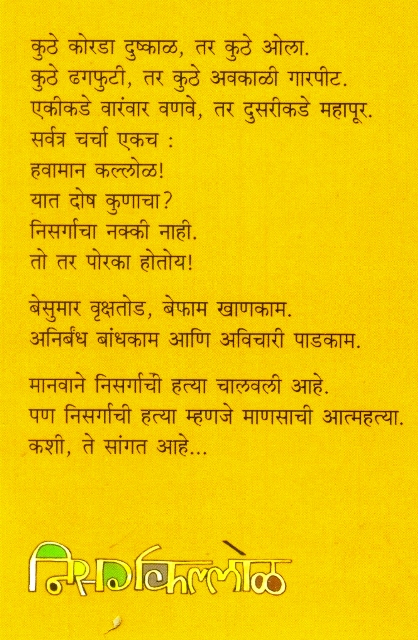 कुठे कोरडा दुष्काळ, तर कुठे ओला.
कुठे ढगफुटी, तर कुठे अवकाळी गारपीट.
एकीकडे वारंवार वणवे, तर दुसरीकडे महापूर.
सर्वत्र चर्चा एकच :
हवामान कल्लोळ!
यात दोष कुणाचा?
निसर्गाचा नक्की नाही.
तो तर पोरका होतोय!
बेसुमार वृक्षतोड, बेफाम खाणकाम.
अनिर्बंध बांधकाम आणि अविचारी पाडकाम.
मानवाने निसर्गाची हत्या चालवली आहे.
पण निसर्गाची हत्या म्हणजे माणसाची आत्महत्या.
कशी, ते सांगत आहे...
निसर्गकल्लोळ